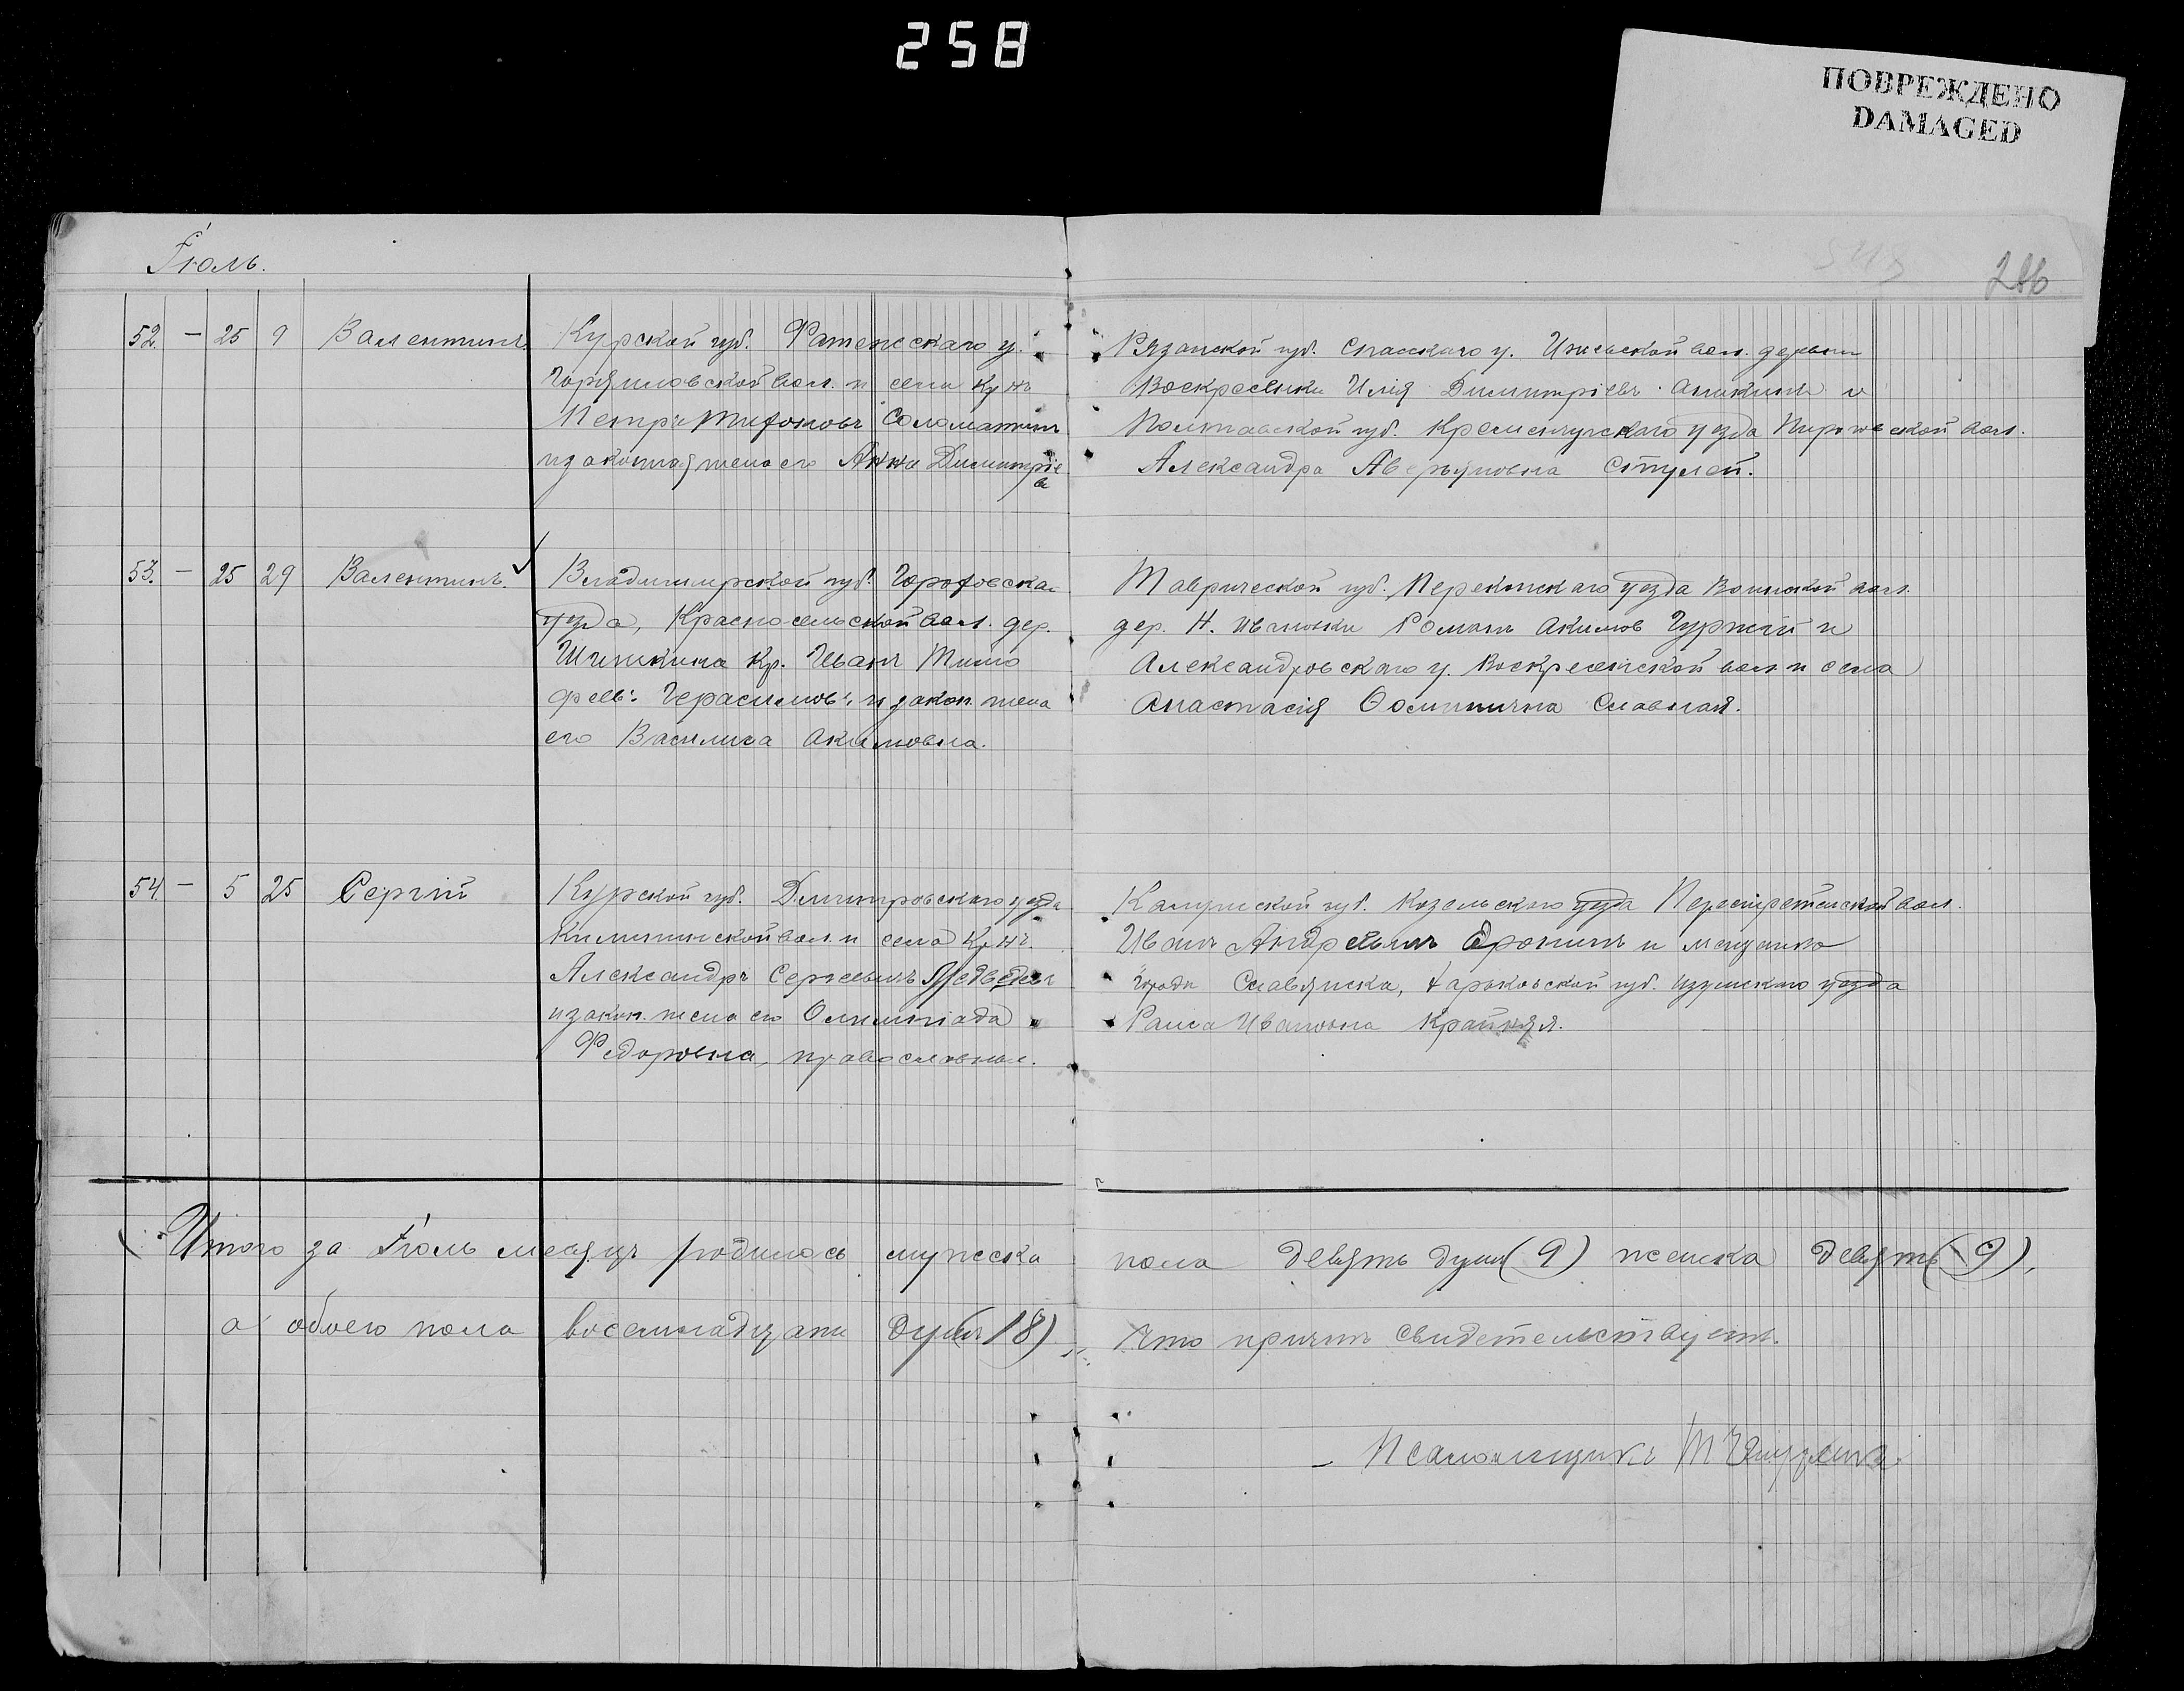 258
ПОВРЕЖДЕНО
DAMAGED
286
Іюль.
52. — 25 9 Валентинъ.
Курской губ. Фатежскаго у.
вол. и села Кр-нъ
Петръ Соломатинъ
и законная жена его Анна Димитріе
ва
Рязанской губ. Спасскаго у. Ижевской вол. деревни
Воскресенки Илія Димитріевъ Аникинъ и
Полтавской губ. Кременчугскаго уезда вол.
Александра Аверьяновна Стулей.
53. — 25 29 Валентинъ.
Владимирской губ. Гороховска
уезда, Красносельской вол. дер.
Кр. Иванъ Тимо
феевъ Герасимовъ и закон. жена
его Василиса Акимовна.
Таврической губ. Перекопскаго уезда Воинской вол.
дер. Н. Ивановки Романъ Акимов Гуржій и
Александровскаго у. Воскресенской вол и села
Анастасія Славная.
54. — 5 25 Сергій
Курской губ. Дмитровскаго уезда
вол. и села Кр-нъ
Александръ Сергеевичъ Медведевъ
и закон. жена его Олимпіада
Федоровна, православная.
Калужской губ. Козельскаго уезда вол.
Иванъ Андреевичъ и мещанка
города Славянска, Харьковской губ. Изюмскаго уезда
Раиса Ивановна Крайняя.
Итого за Іюль месяцъ родилось мужеска
пола девять душ (9) женска девять (9),
а обоего пола восемнадцать душъ (18)
Что причтъ свидетельствуетъ.
Псаломщикъ